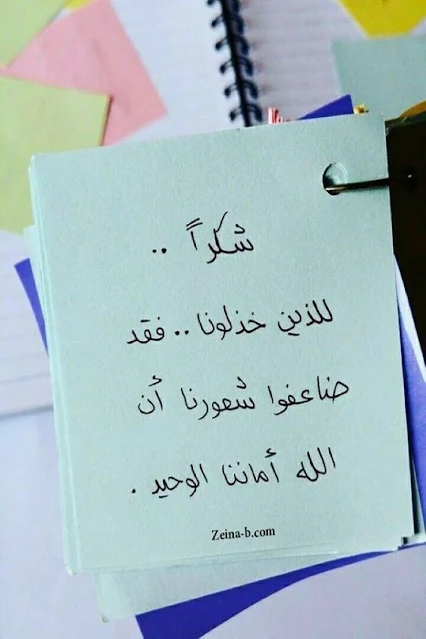 شكراً ..
للذين خذلونا .. فقد
ضاعفوا شعورنا أن
الله أماننا الوحيد .
Zeina-b.com